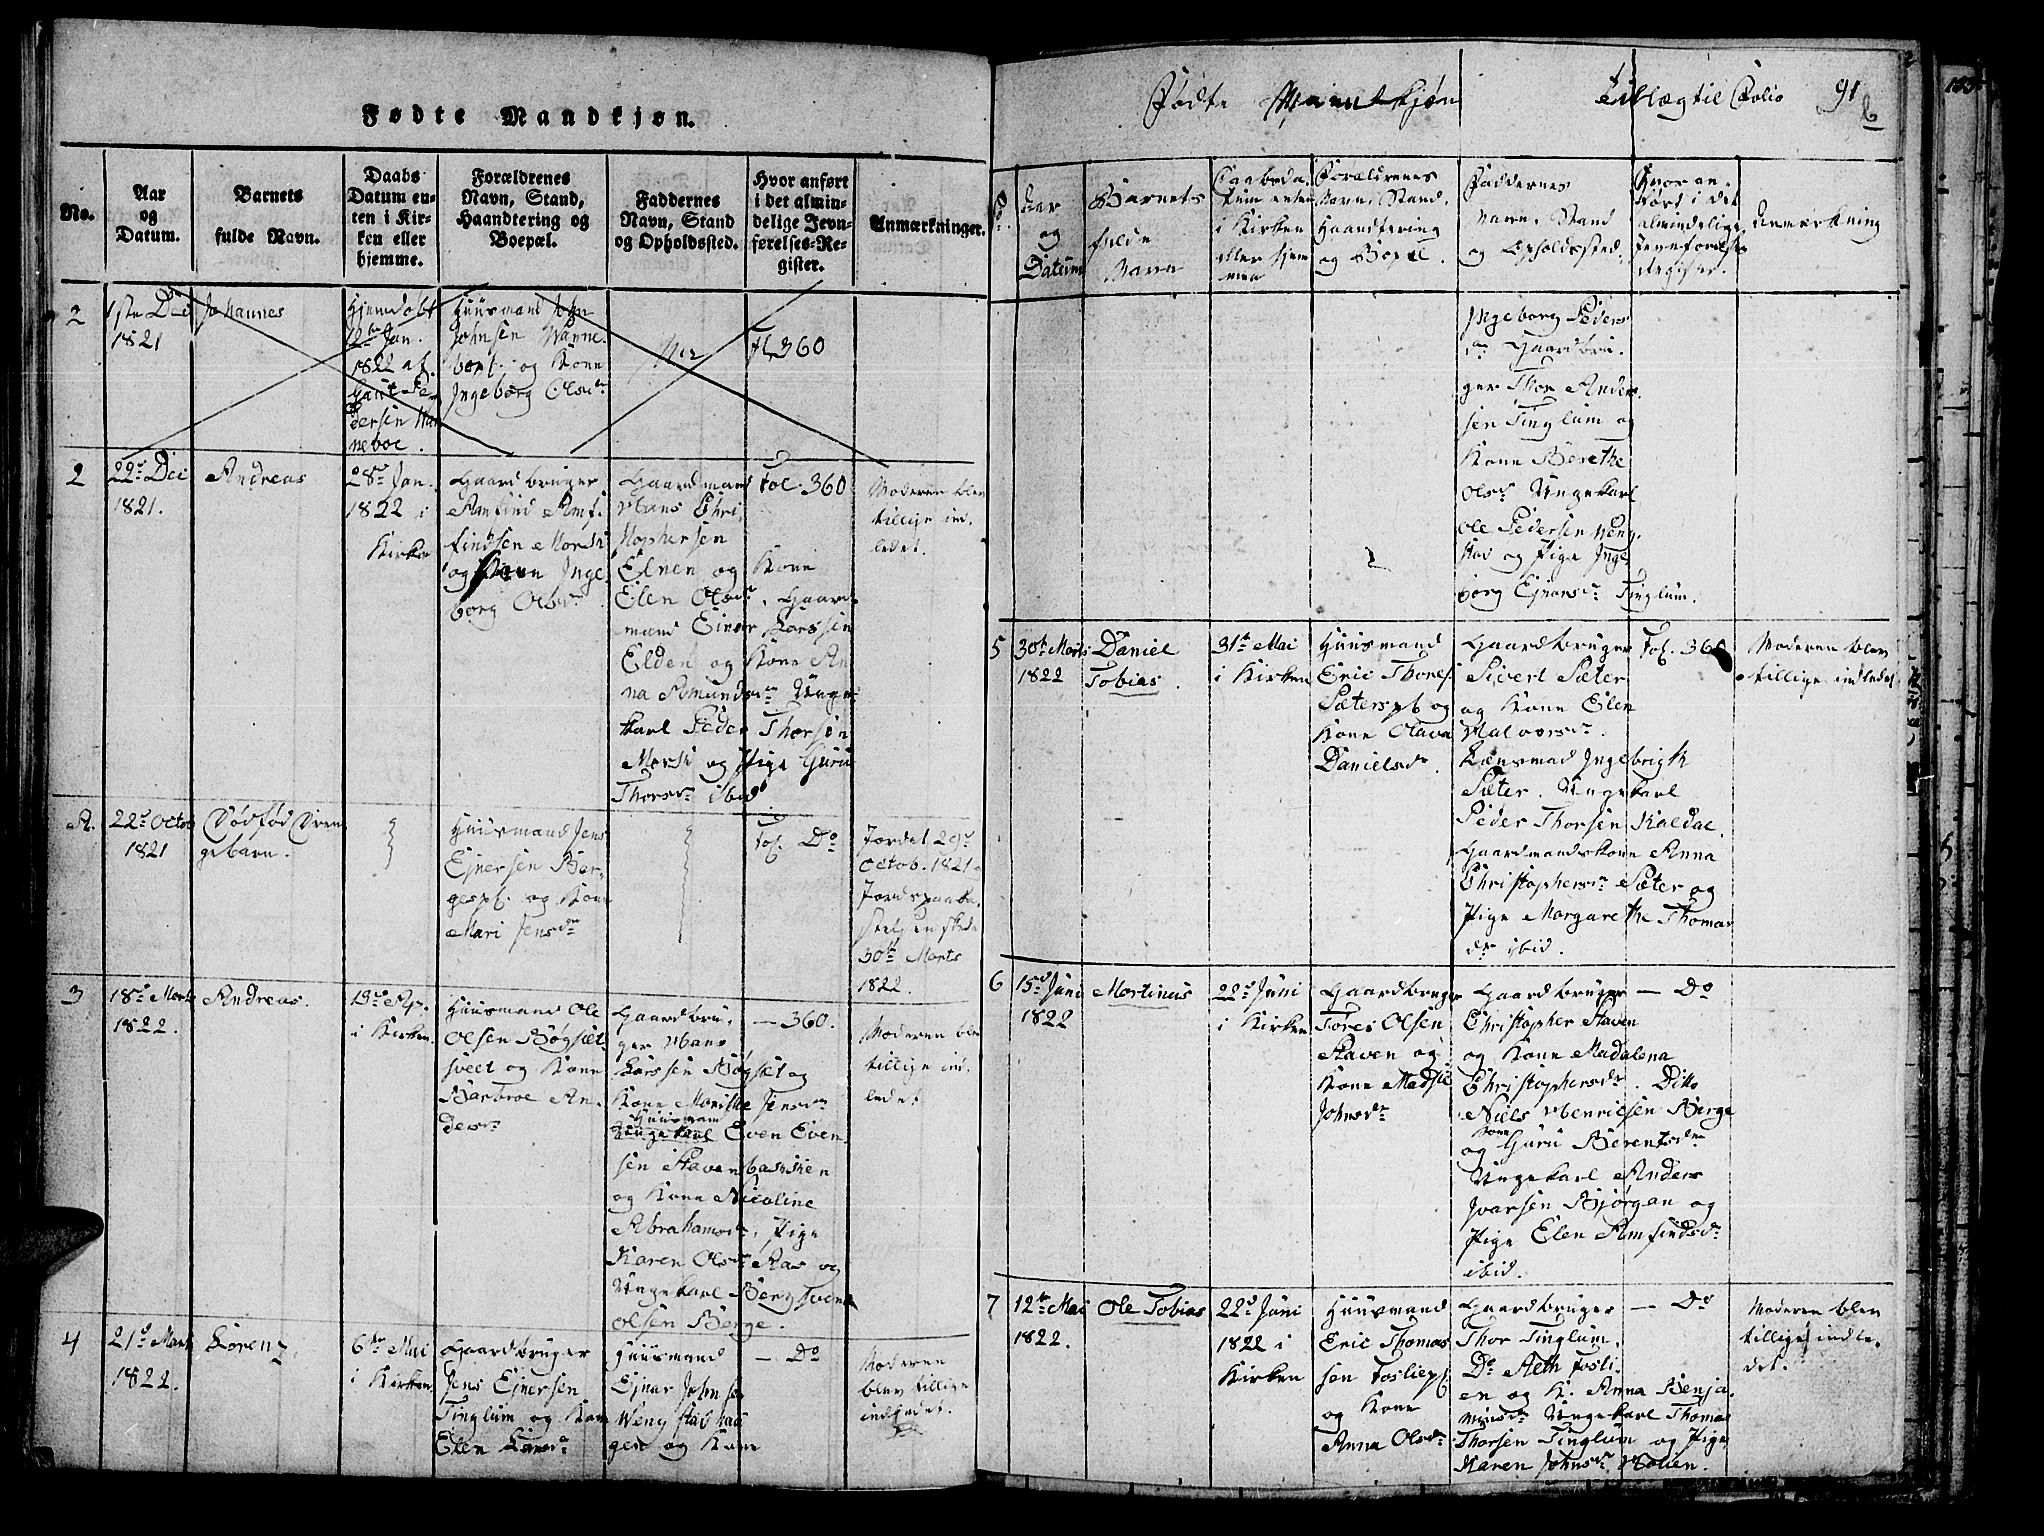 Fødte Mandkjøn.
No.
Aar
og
Datum.
Barnets
fulde Navn.
Daabs
Datum en-
ten i Kir-
ken eller
hjemme.
Forældrenes
Navn, Stand,
Haandtering og
Boepæl.
Faddernes
Navn, Stand
og Opholdssted.
Hvor anført
i det almin-
delige Jevn-
førelses-Re-
gister.
Anmærkninger.
2
1ste Dec
1821
Johannes
Hjemdøbt
12te Jan.
1822 af
Gaut Pe
dersen Wan
neboe.
Huusmand John
Johnsen Wanne-
boept. og Kone
Ingeborg Olsdr
fl 360
2
22de Dec
1821.
Andreas
28de Jan.
1822 i
Kirken
Gaardbruger
Amfind Amf.
findsen Morsk
og Kone Inge
borg Olsdr
Gaardmand
Hans Chri
stophersen
Elnen og Kone
Elen Olsdr, Gaard
mand Einer Larssen
Elden og Kone An
na Amundsdr Unge
karl Peder Thorsen
Morsk og Pige Guru
Thorsdr ibid
Fol. 360
Moderen blev
tillige ind.
ledet.
A.
22de Octor
1821
Dødfød Dren
gebarn.
Huusmand Jens
Ejnersen Ber-
gespl. og Kone
Mari Jensdr
Fol. Do
Jordet 29de
Octob. 1821.
Jordspaaka
stelsen skede
30te Marts
1822
3
18de Marts
1822.
Andreas.
19de Ap.
i Kirken.
Huusmand Ole
Olsen Bøgsæt-
sveet og Kone
Barbroe An-
dersdr
Gaardbru-
ger Hans
Larssen Bøgset og
Kone Marithe Jensdr
Huusmand
Ungekarl Even Even
sen Stavensbakken
og Kone Nicoline
Abrahamsdr, Pige
Karen Olsdr Aas og
Ungekarl Bengt Svend
Olsen Berge.
— 360.
Moderen blev
tillige ind.
ledet
4
21de Marts
1822.
Lorenz.
6te Mai
i Kirken
Gaardbruger
Jens Ejnersen
Tinglum og Kone
Elen Larsdr
Huusmand
Ejnar Johnsen
Wengstadhau
gen og Kone
— Do
Moderen
blev tillige
indledet.
Fødte Mandkjøn
Tillæg til Folio 91
b
No.
Aar
og
Datum
Barnets
fulde
Navn
Daabsda.
tum enten
i Kirken
eller hjem
me
Forældrenes
Navn, Stand,
Haandtering
og Bopæl.
Faddernes
Navn, Stand
og Opholdssted.
Hvor an.
ført i det
almindelige
Jevnførelses
Register.
Anmærkning
Ingeborg Peders
dr Gaardbru.
ger Thor Anders
sen Tinglum og
Kone Berethe
Olsdr Ungekarl
Ole Pedersen Weng
stav og Pige Inge
borg Ejnarsdr Tinglum.
5
30te Marts
1822
Daniel
Tobias.
31te Mai
i Kirken
Huusmand
Eric Thores
Sæterspl og
Kone Olava
Danielsdr.
Gaardbruger
Sivert Sæter
og Kone Elen
Halvorsdr.
Lænsmad Ingebrigth
Sæter. Ungekarl
Peder Thorsen Kaldal.
Gaardmandskone Anna
Christophersdr Sæter og
Pige Margarethe Thomas
dr ibid.
Fol. 360
Moderen blev
tillige indledet
6
15de Juni
1822
Mortinus
22de Juni
i Kirken
Gaardbruger
Tores Olsen
Staven og
Kone Madsie
Johnsdr
Gaardbruger
Christopher Staven
og Kone Madalena
Christophersdr. Ditto
Niels Henricsen Berge
og Kone Guru Berentsdr
Ungekarl Anders
Ivarsen Bjørgan og
Pige Elen Amfindsdr
ibid.
— Do
7
12te Mai
1822.
Ole Tobias
22de Juni
1822 i
Kirken
Huusmand
Eric Thomas
sen Fosliepl.
og Kone
Anna Olsdr
Gaardbruger
Thor Tinglum.
Do Aeth Fosli-
en og K. Anna Benja
minsdr Ungekarl Thomas
Thorsen Tinglum og Pige
Karen Johnsdr Holien.
— Do
Moderen blev
tillige indle.
det.